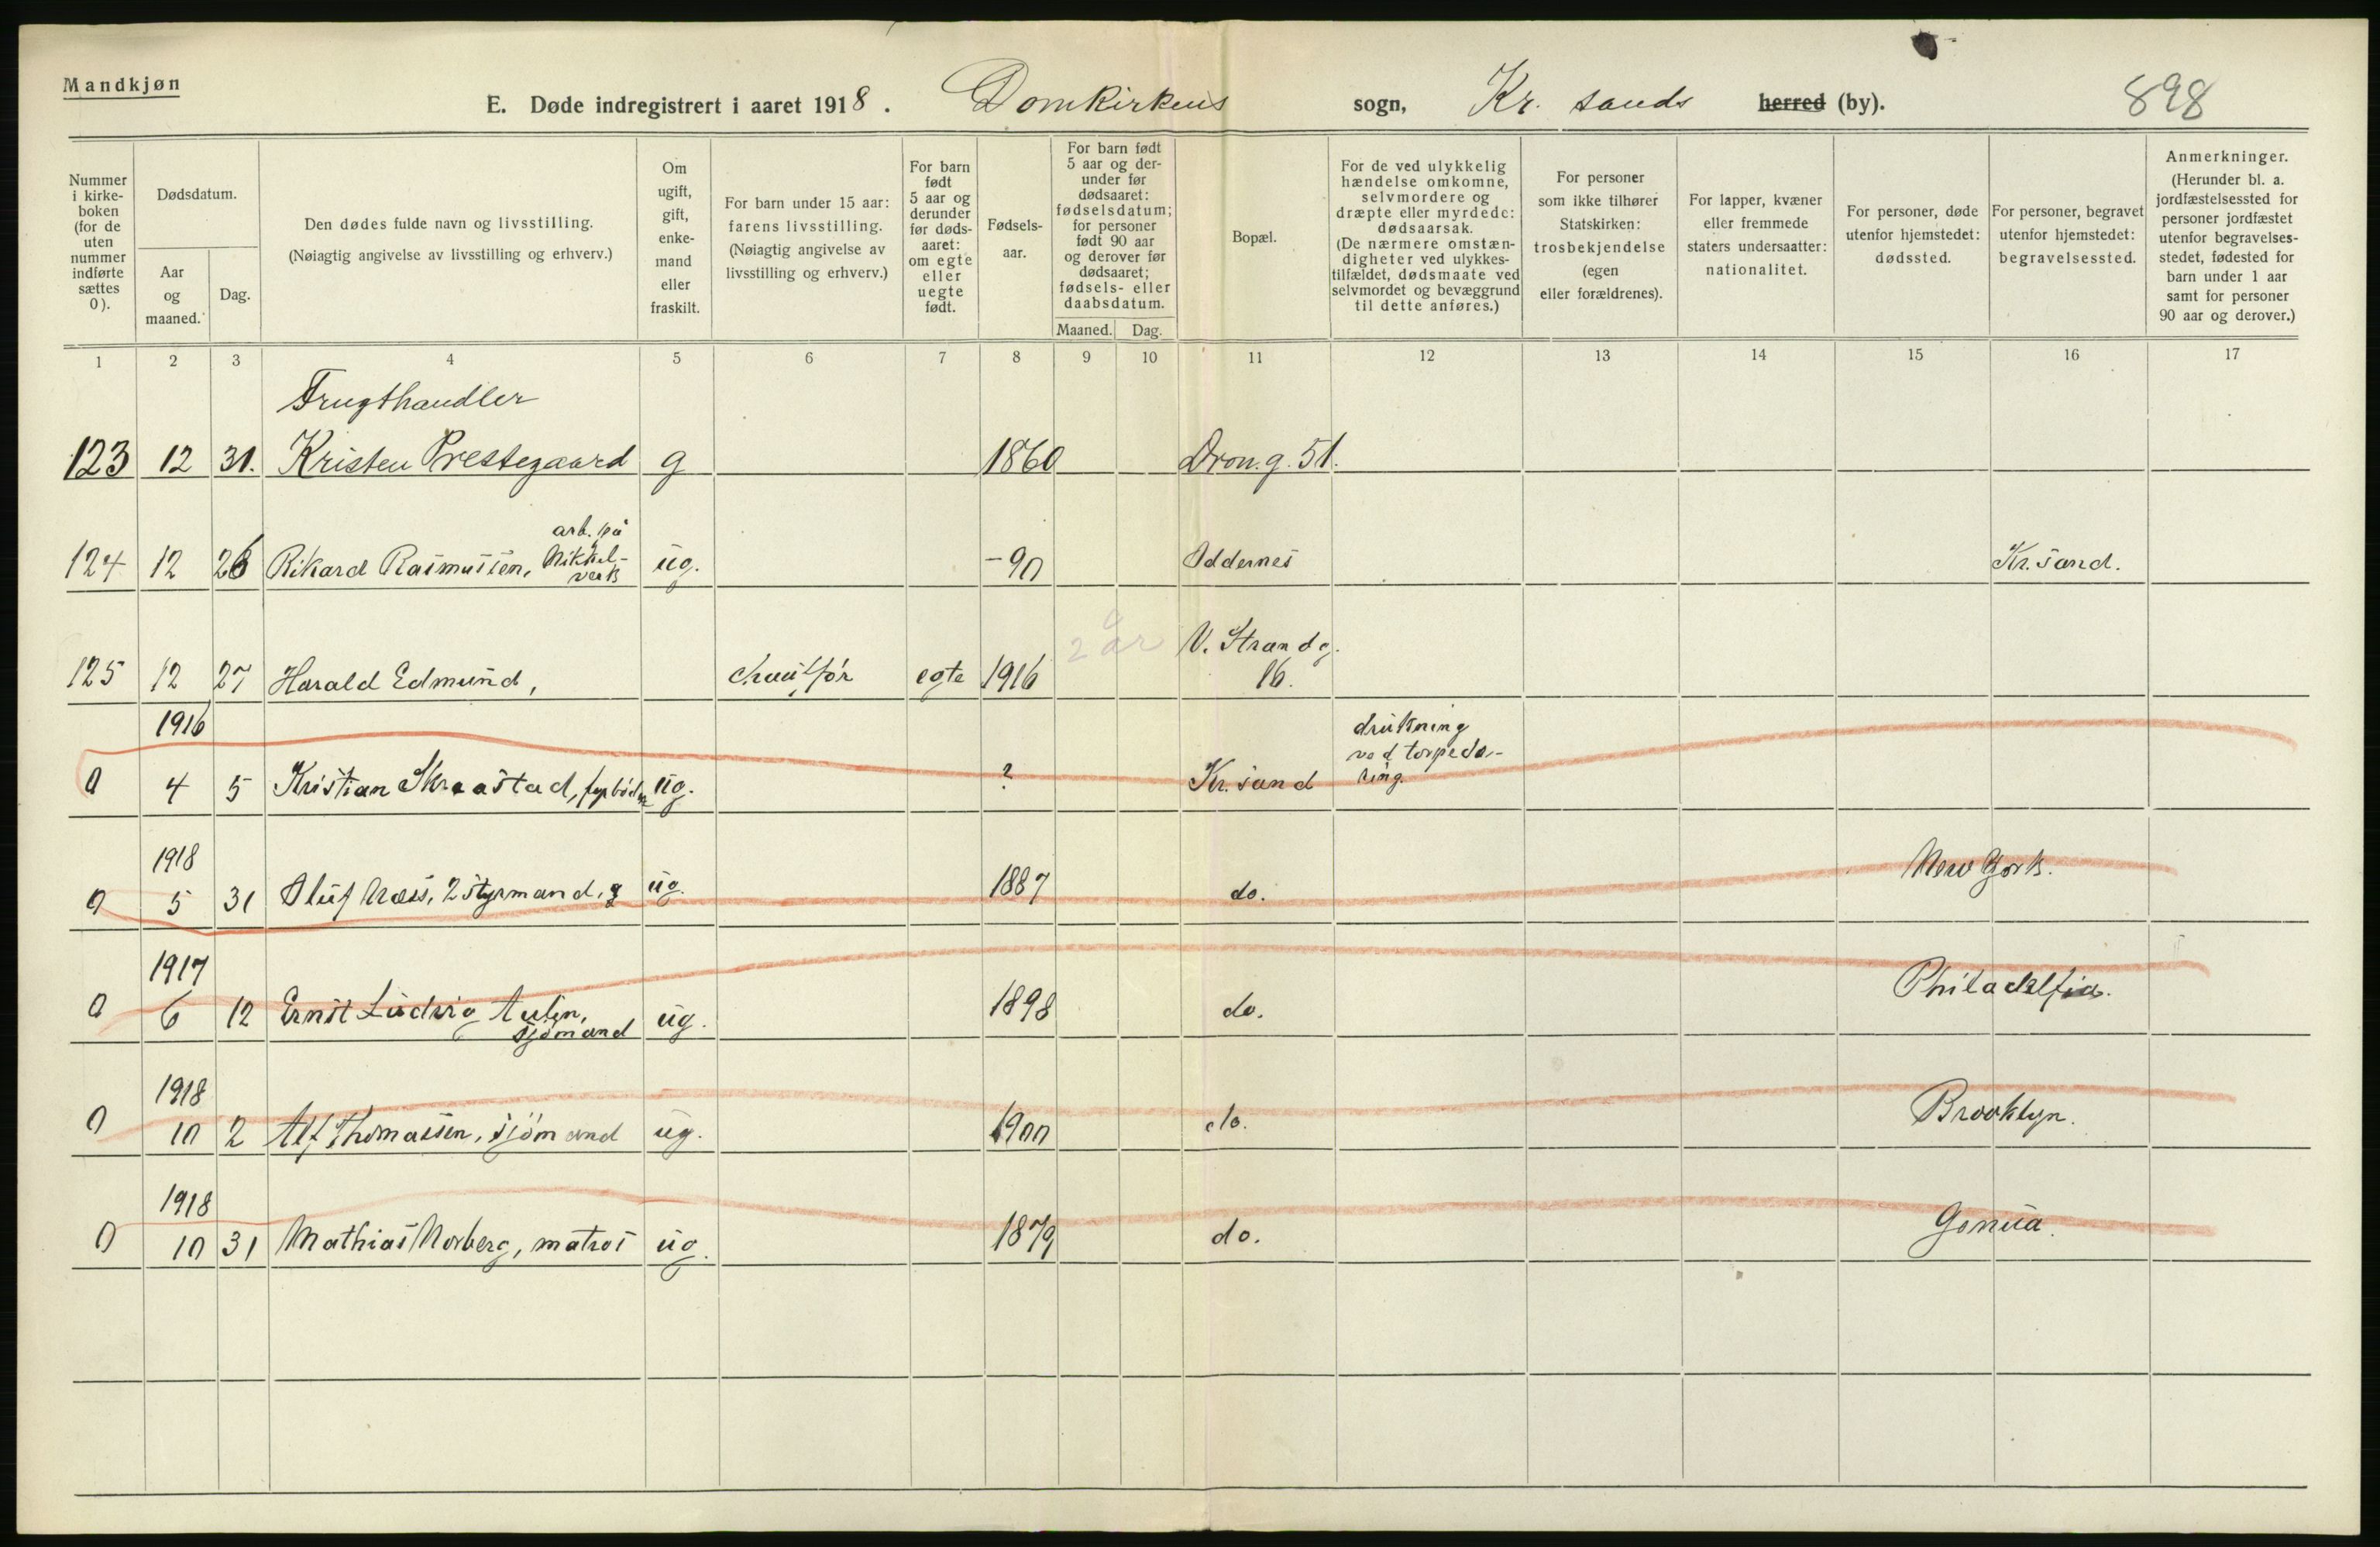 Mandkjøn
E. Døde indregistrert i aaret 1918. Domkirkens sogn, Kr. sands herred (by). 898
Nummer i kirke-boken (for de uten nummer indførte sættes 0).
Dødsdatum.
Aar og maaned.
Dag.
Den dødes fulde navn og livsstilling.
(Nøiagtig angivelse av livsstilling og erhverv.)
Om ugift, gift, enke-mand eller fraskilt.
For barn under 15 aar: farens livsstilling.
(Nøiagtig angivelse av livsstilling og erhverv.)
For barn født 5 aar og derunder før døds-aaret: om egte eller uegte født.
Fødsels-aar.
For barn født 5 aar og der-under før dødsaaret: fødselsdatum; for personer født 90 aar og derover før dødsaaret; fødsels- eller daabsdatum.
Maaned. Dag.
Bopæl.
For de ved ulykkelig hændelse omkomne, selvmordere og dræpte eller myrdede: dødsaarsak.
(De nærmere omstæn-digheter ved ulykkes-tilfældet, dødsmaate ved selvmordet og bevæggrund til dette anføres.)
For personer som ikke tilhører Statskirken: trosbekjendelse (egen eller forældrenes).
For lapper, kvæner eller fremmede staters undersaatter: nationalitet.
For personer, døde utenfor hjemstedet: dødssted.
For personer, begravet utenfor hjemstedet: begravelsessted.
Anmerkninger.
(Herunder bl. a. jordfæstelsessted for personer jordfæstet utenfor begravelses-stedet, fødested for barn under 1 aar samt for personer 90 aar og derover.)
1 2 3 4 5 6 7 8 9 10 11 12 13 14 15 16 17
Frugthandler
123 12 31. Kristen Prestegaard g 1860 Dron.g. 51.
arb. på
124 12 26 Rikard Rasmussen, Nikkel-verk ug. -90 Oddernes Kr.sand.
2 år V. Strandg.
125 12 27 Harald Edmund, chauffør egte 1916 16.
1916 drukning
ved torpede-
0 4 5 Kristian Skraastad, fyrbøder ug. ? Kr.sand ring.
1918
0 5 31 Oluf Næss, 2 styrmand, ug. 1887 do. New York.
1917
0 6 12 Ernst Ludvig Aulin, 1898 do. Philadelfia.
sjømand ug.
1918
0 10 2 Alf Thomassen, sjømand ug. 1900 do. Brooklyn.
1918
0 10 31 Mathias Norberg, matros ug. 1879 do. Genua.